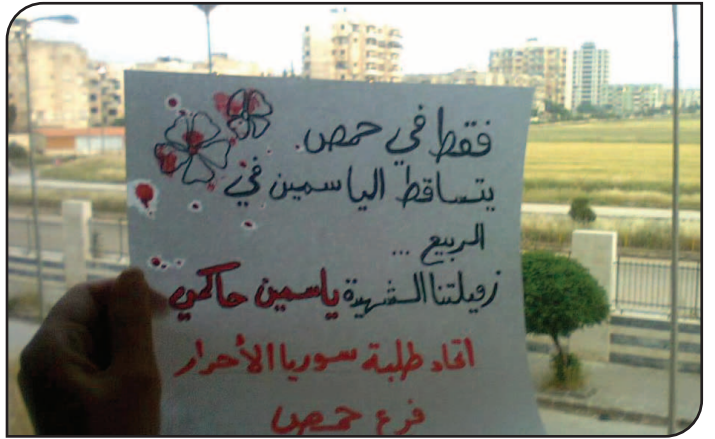 فقط في حمص
يتساقط الياسمين في
الربيع ...
زميلتنا الشهيدة ياسمين حاكمي
اتحاد طلبة سوريا الأحرار
فرع حمص